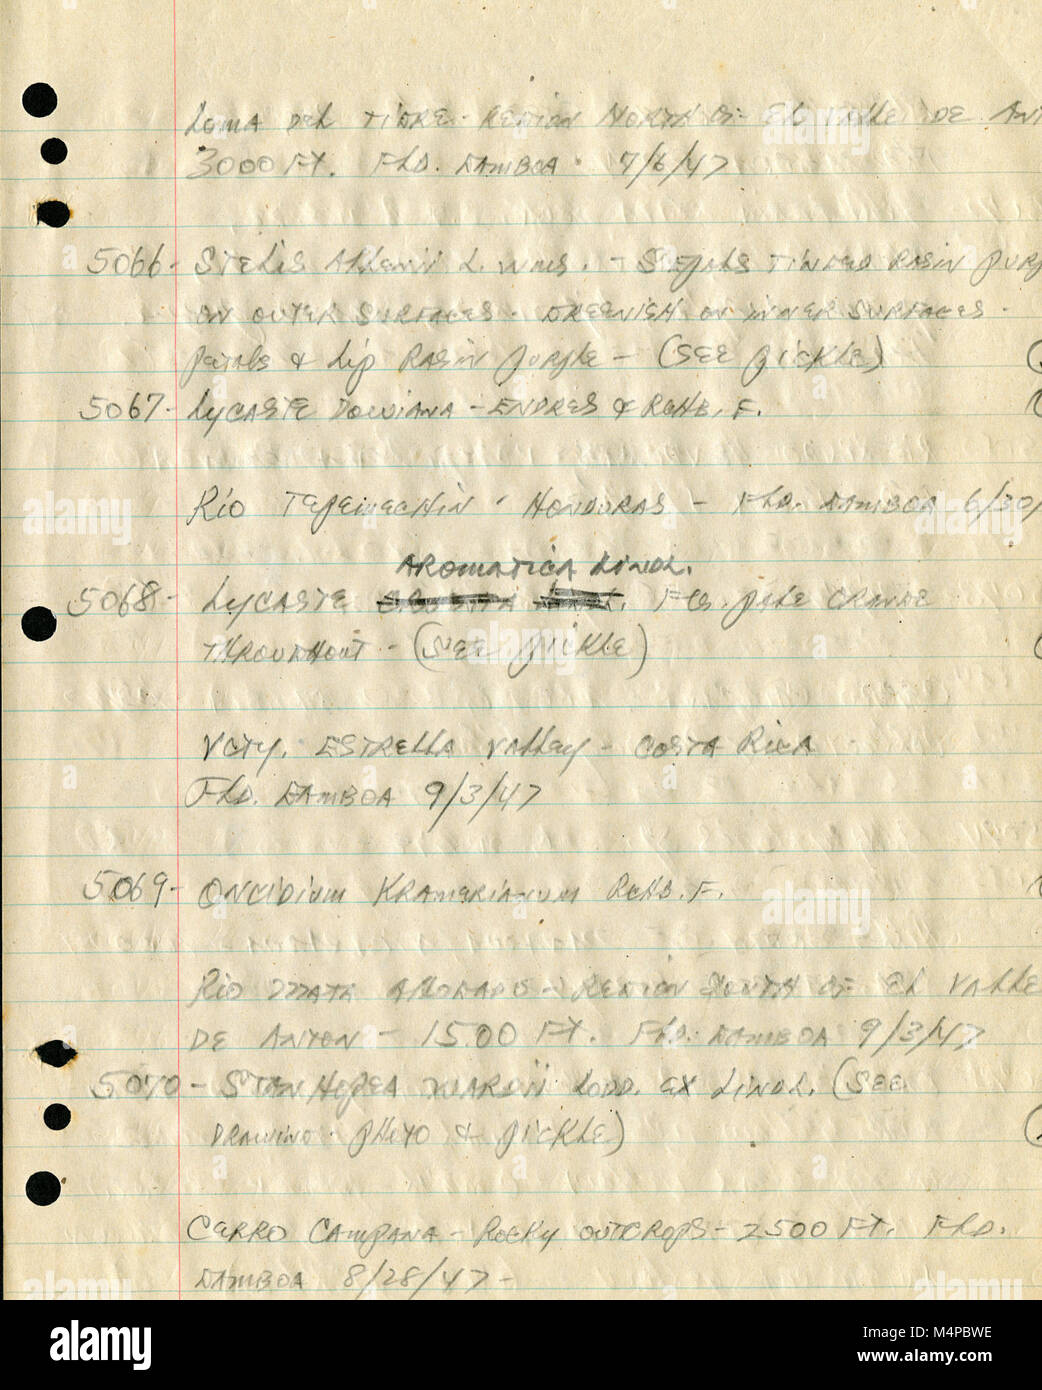 Loma del Tigre - Region North of El Valle de Ant
3000 Ft. Fld. Gamboa. 7/6/47
5066 - Stelis Allenii L. Wms. - Sepals tinged rasin purp
on outer surfaces. Greenish on inner surfaces.
Petals & lip rasin purple - (see pickle)
5067 - Lycaste Dowiana - Endres & Rchb. F.
Rio - Honduras - Fld. Gamboa 6/30/
Aromatica Lindl.
5068 - Lycaste Fls. pale orange
throughout - (see pickle)
Vcty. Estrella Valley - Costa Rica
Fld. Gamboa 9/3/47
5069 - Oncidium Kramerianum Rchb. F.
Rio Mata Ahogado - Region South of El Valle
de Anton - 1500 Ft. Fld. Gamboa 9/3/47
5070 - Stanhopea Wardii Lodd. ex Lindl. (see
drawing. photo & pickle)
Cerro Campana - Rocky outcrops - 2500 Ft. Fld.
Gamboa 8/28/47 -
alamy
Image ID: M4PBWE
www.alamy.com